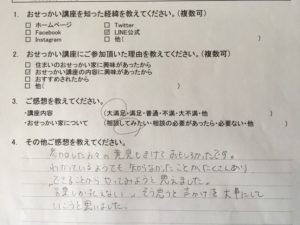 1. おせっかい講座を知った経緯を教えてください。(複数可)
□ ホームページ □ Twitter
□ Facebook ☑ LINE公式
□ Instagram □ 他( )
2. おせっかい講座にご参加頂いた理由を教えてください。(複数可)
□ 住まいのおせっかい家に興味があったから
☑ おせっかい講座の内容に興味があったから
□ おすすめされたから
□ 他( )
3. ご感想を教えてください。
・講座内容 (大満足・満足・普通・不満・大不満・他 )
・おせっかい家について (相談してみたい・相談の必要があったら・必要ない・他 )
4. その他ご感想を教えてください。
参加した方々の意見もきけておもしろかったです。
わかっているようでも知らなかったことがたくさんあり
できることからやってみようと思えました。
言葉しか伝えない。そう思うと声かけを大事にして
いこうと思いました。